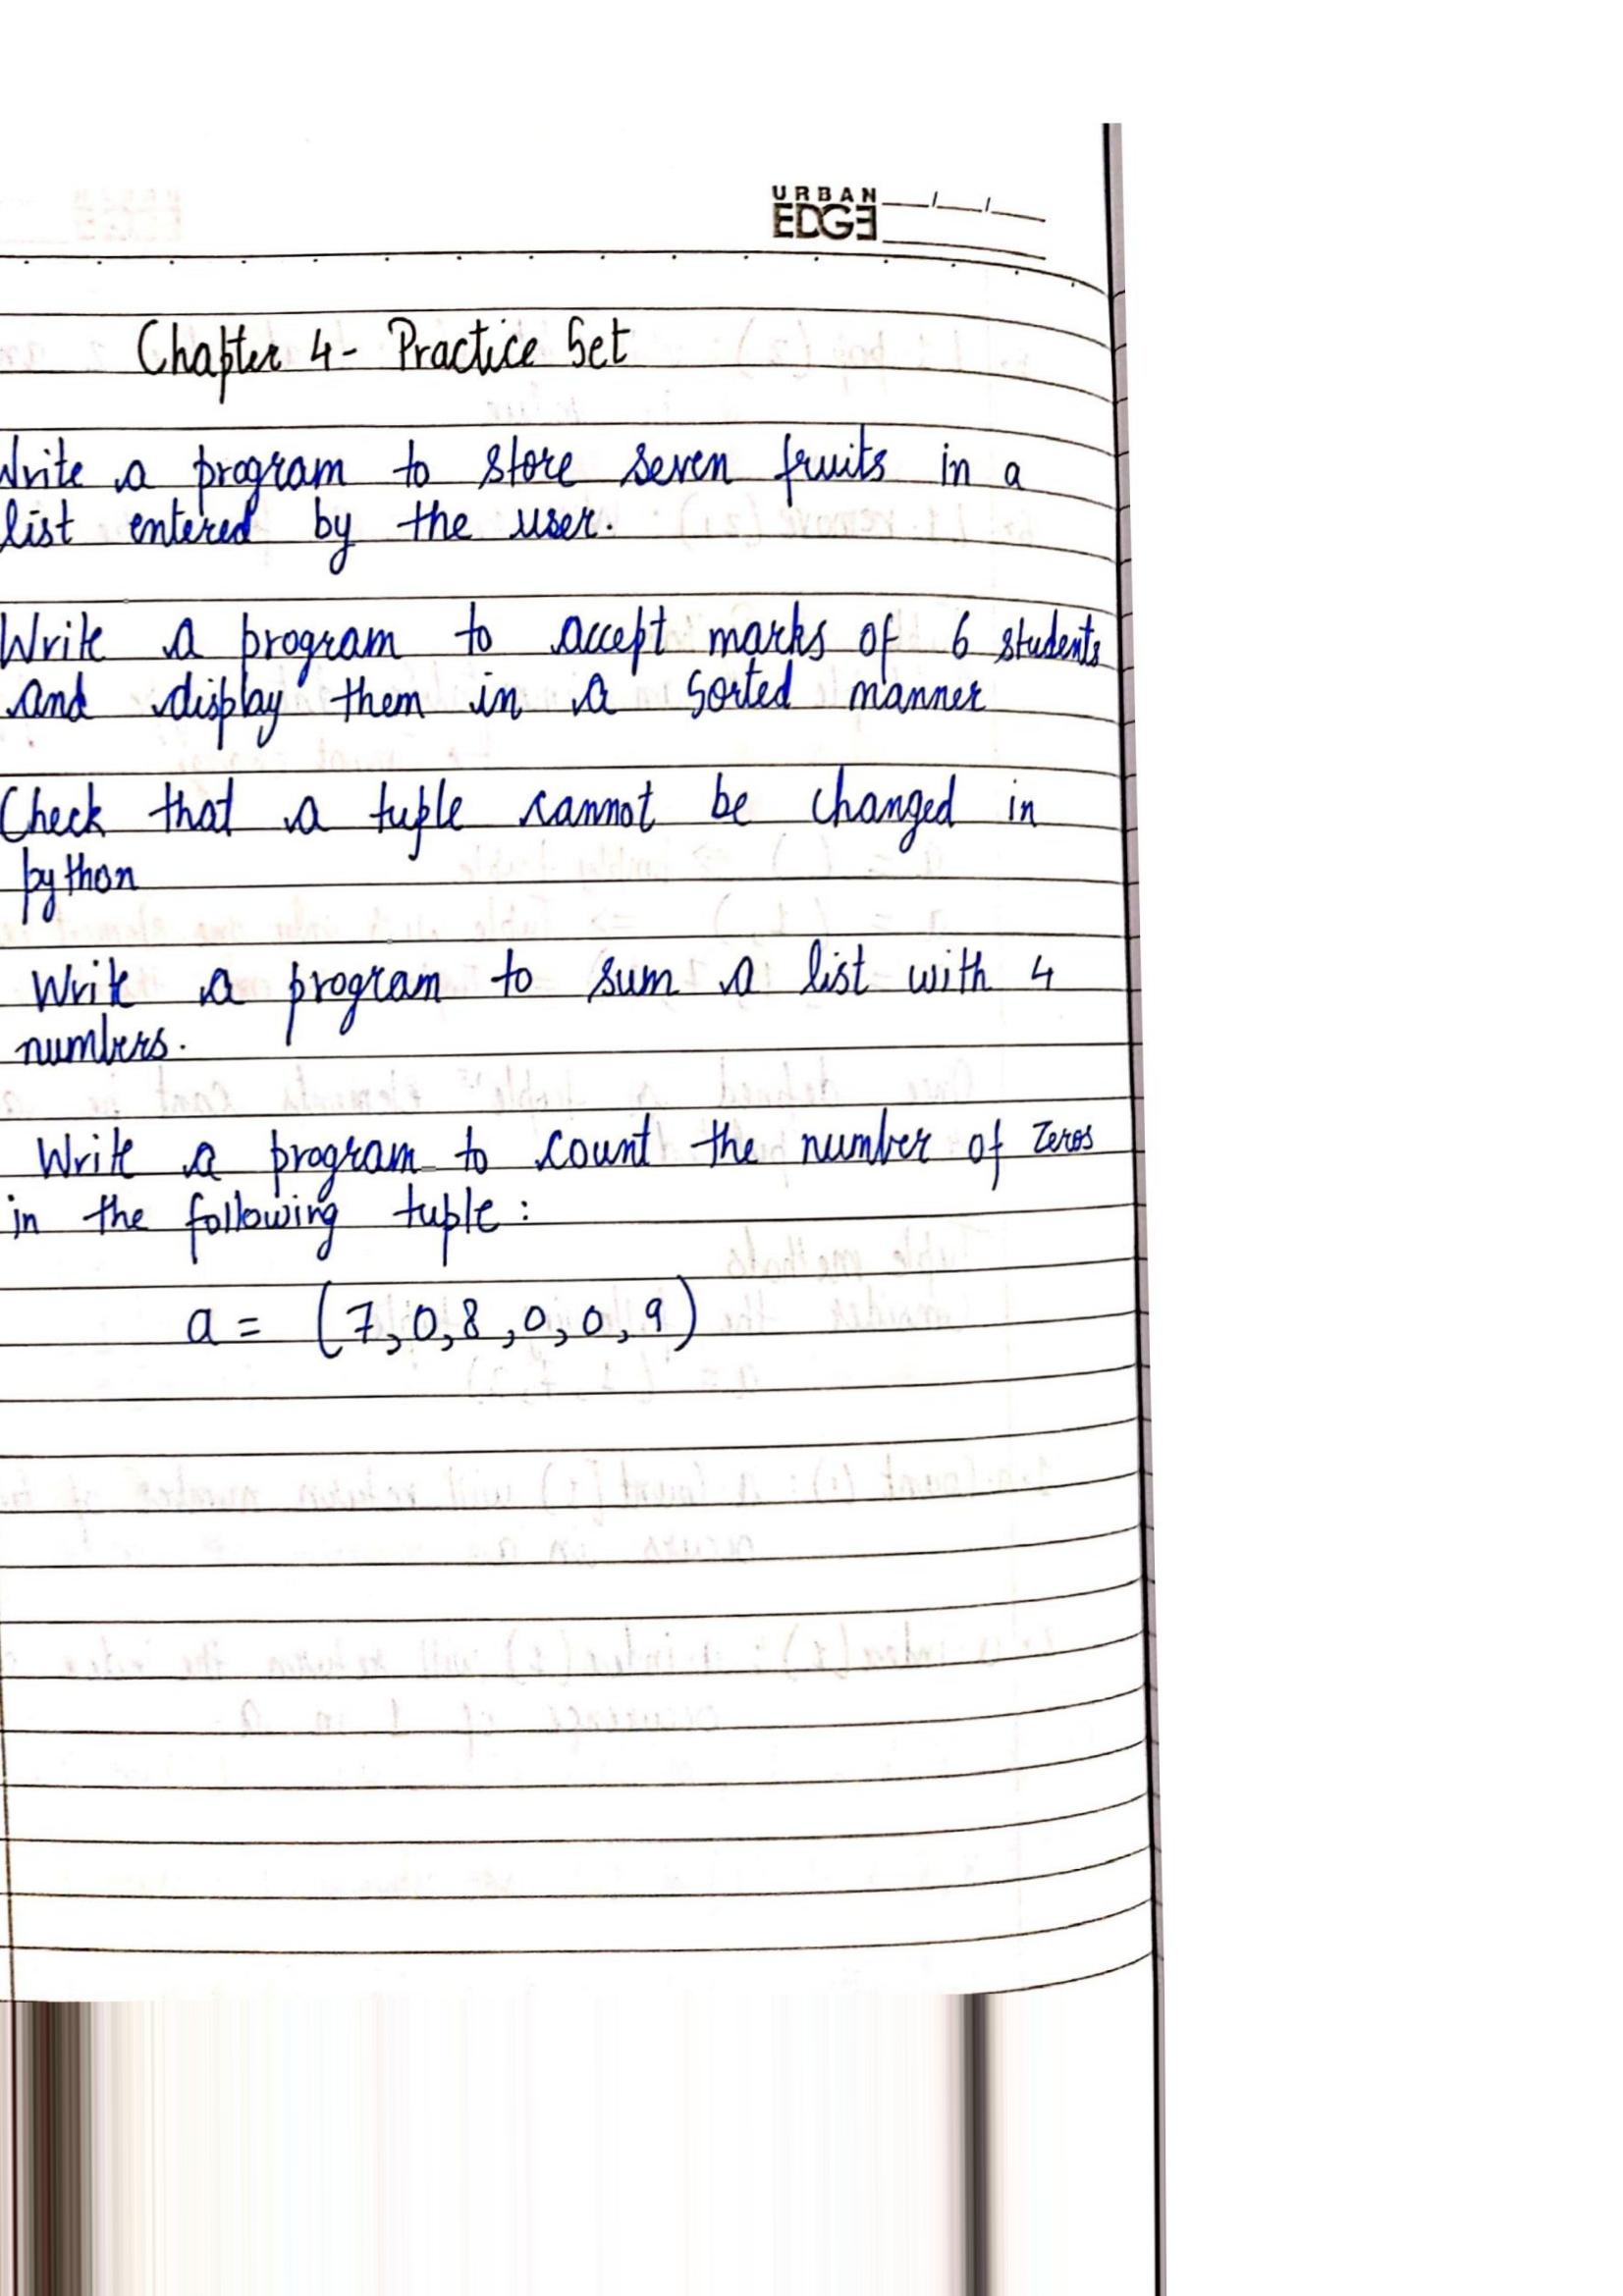 URBAN
EDGE
Chapter 4- Practice Set
Write a program to store seven fruits in a
list entered by the user.
Write a program to accept marks of 6 students
and display them in a sorted manner
Check that a tuple cannot be changed in
python
Write a program to sum a list with 4
numbers.
Write a program to count the number of zeros
in the following tuple:
a = (7,0,8,0,0,9)